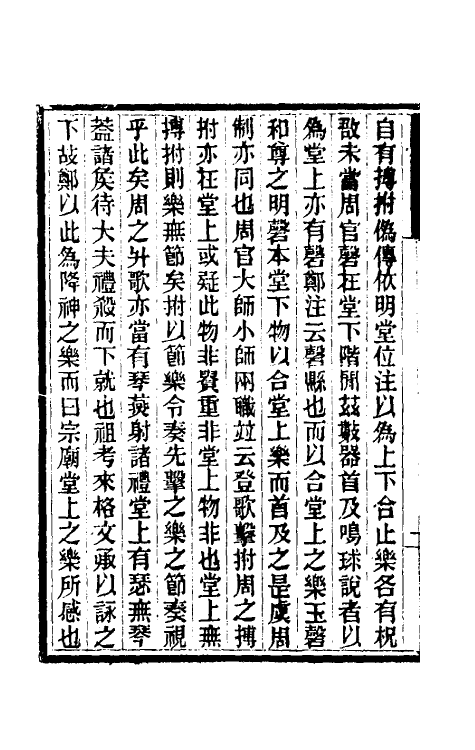 自有搏拊偽傳依明堂位注以為上下合止樂各有柷
敔未當周官磬在堂下階閒茲數器首及鳴球說者以
為堂上亦有磬鄭注云磬縣也而以合堂上之樂玉磬
和尊之明磬本堂下物以合堂上樂而首及之是虞周
制亦同也周官大師小師兩職竝云登歌擊拊周之搏
拊亦在堂上或疑此物非貴重非堂上物非也堂上無
搏拊則樂無節矣拊以節樂令奏先擊之樂之節奏視
乎此矣周之升歌亦當有琴燕射諸禮堂上有瑟無琴
葢諸矦待大夫禮殺而下就也祖考來格文承以詠之
下故鄭以此為降神之樂而曰宗廟堂上之樂所感也